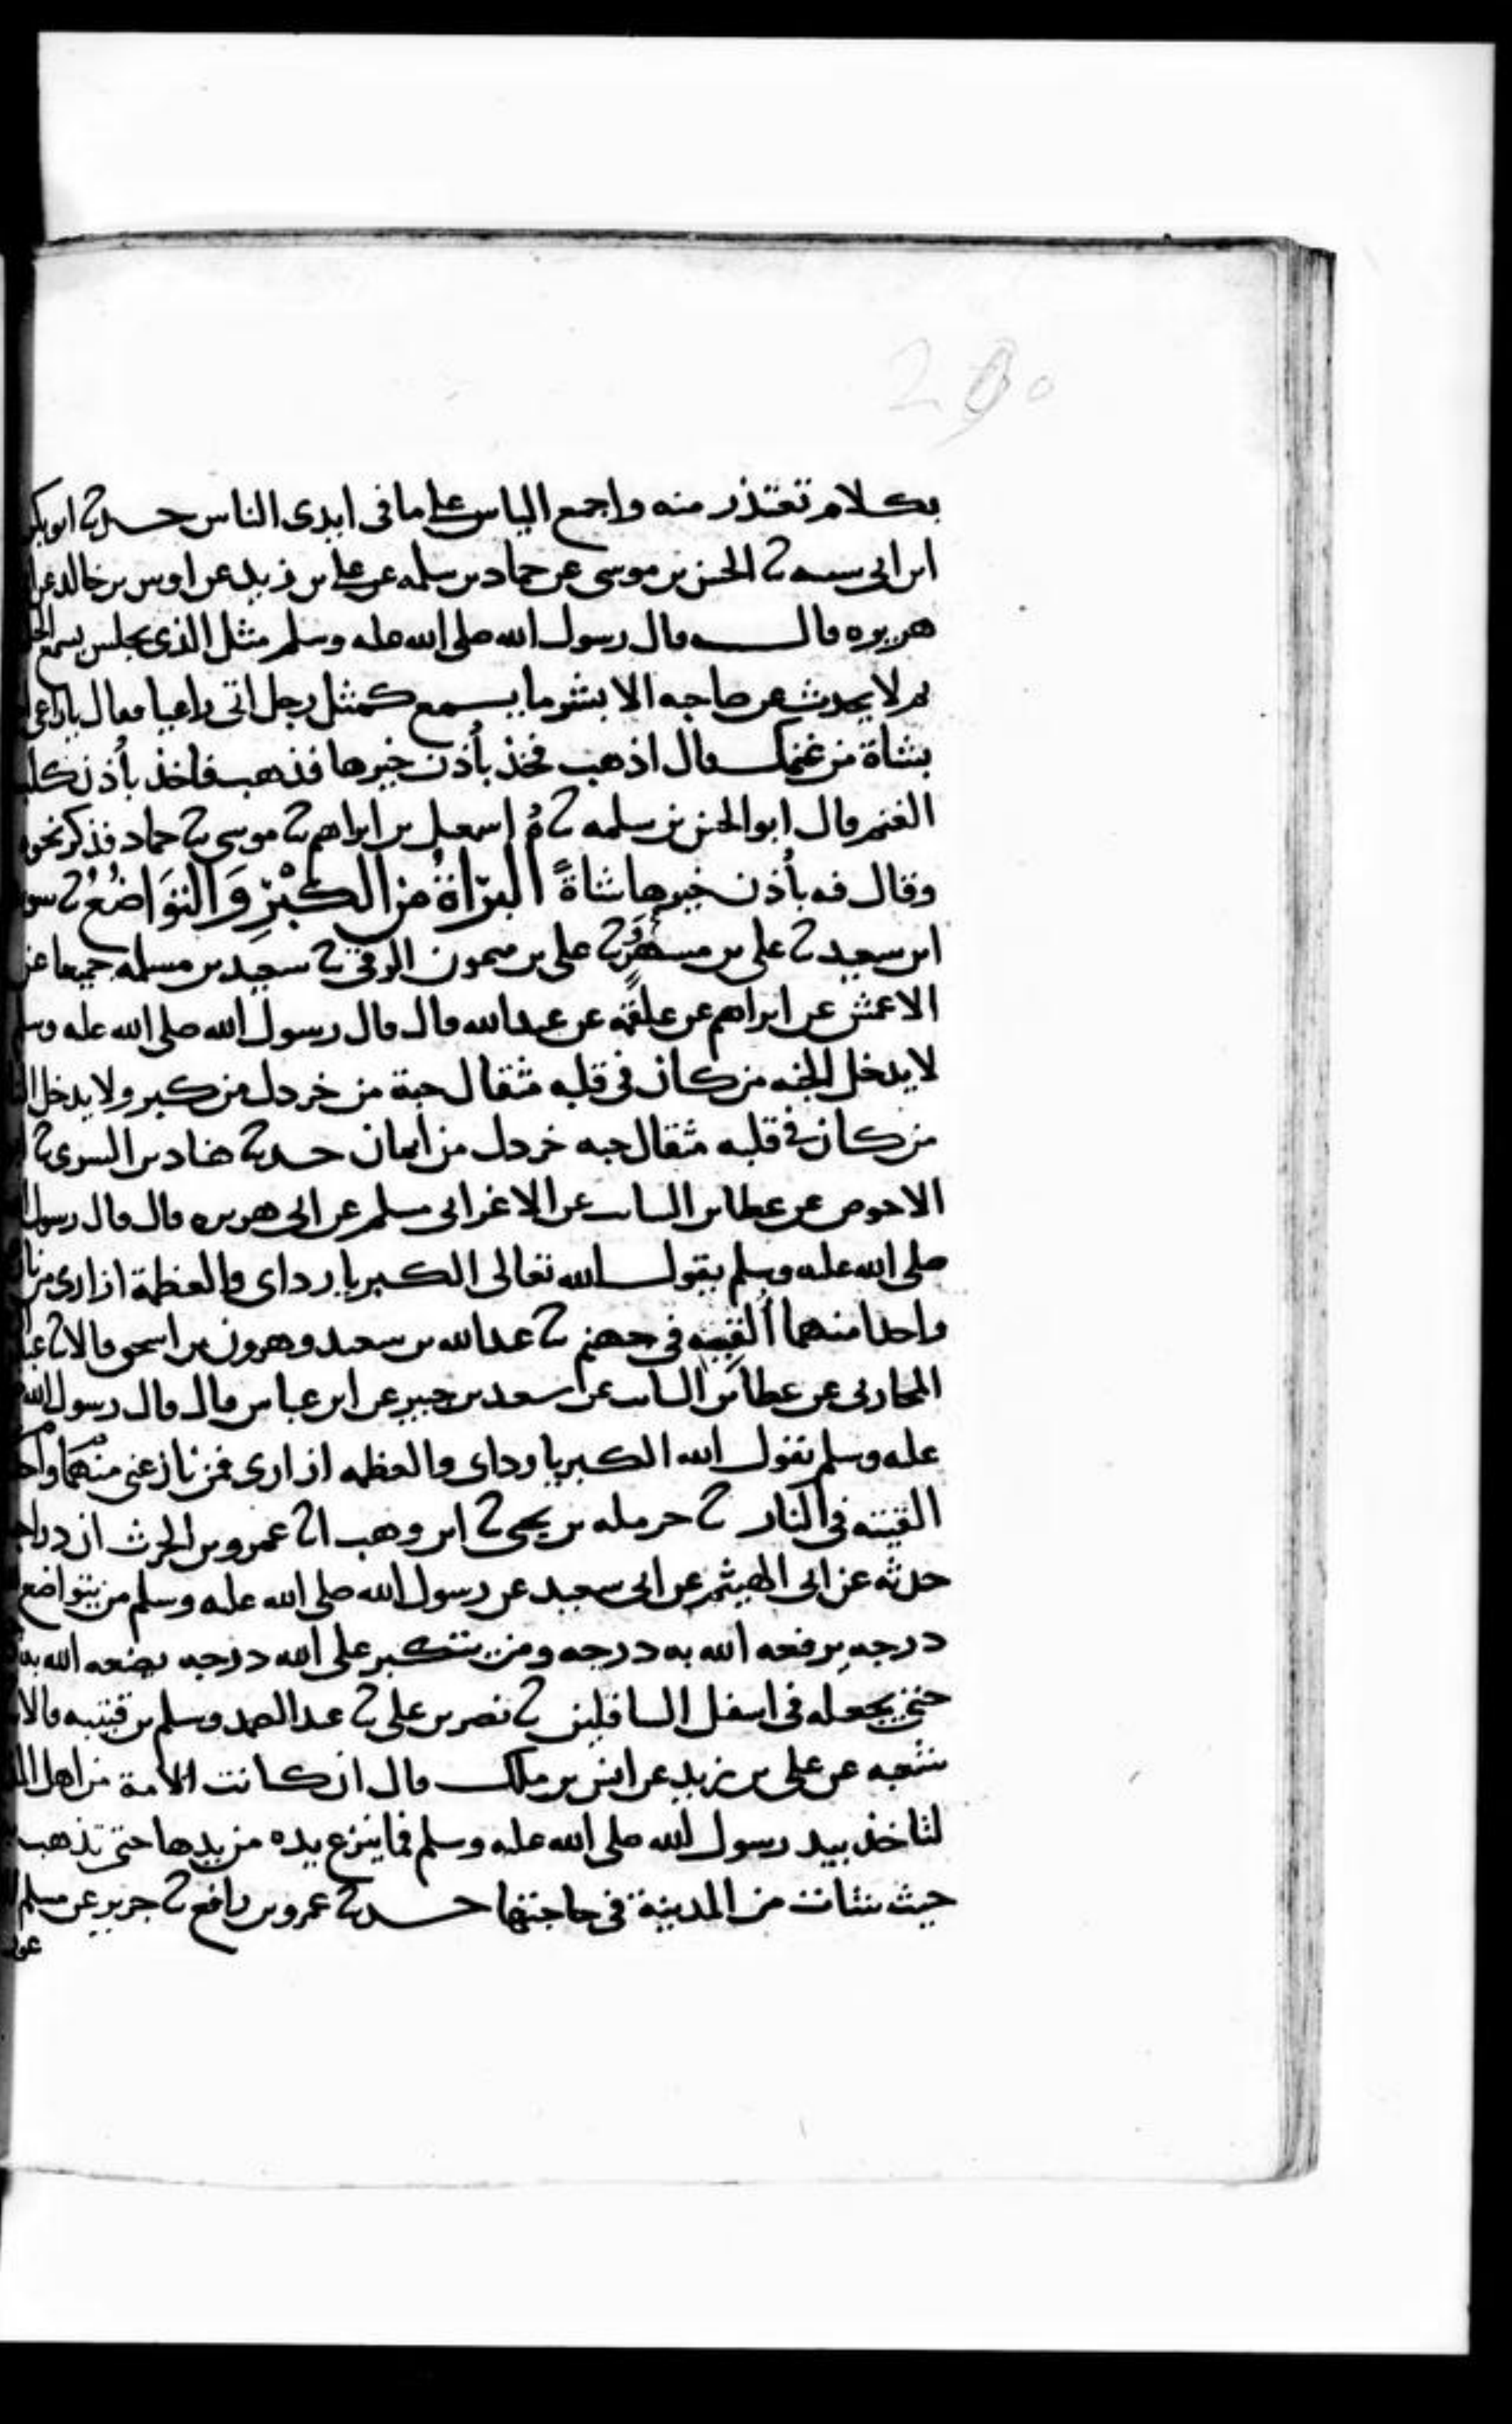 250
بكلام تعتذر منه واجمع الياس على ما فى ايدى الناس حدثنا ابو بكر
ابن ابى شيبه ثنا الحسن بن موسى عن حماد بن سلمه عن على بن زيد عن اوس بن خالد عن
هريره قال قال رسول الله صلى الله عليه وسلم مثل الذى يجلس يسمع
ثم لا يحدث عن صاحبه الا بشر ما يسمع كمثل رجل اتى راعيا فقال يا راعى
بشاة من غنمك قال اذهب فخذ بأذن خيرها فذهب فاخذ بأذن كلب
الغنم قال ابو الحسن بن سلمه ثنا اسمعيل بن ابراهيم ثنا موسى ثنا حماد فذكر نحوه
وقال فيه بأذن خيرها شاةً البرَاةُ من الكِبْرِ وَالتوَاضُعُ ثنا سويد
ابن سعيد ثنا على بن مسهر ثنا على بن ميمون الرقى ثنا سعيد بن مسلمه جميعا عن
الاعمش عن ابراهيم عن علقمه عن عبد الله قال قال رسول الله صلى الله عليه وسلم
لا يدخل الجنه من كان فى قلبه مثقال حبة من خردل من كبر ولا يدخل
من كان فى قلبه مثقال حبه خردل من ايمان حدثنا هناد بن السرى ثنا
الاحوص عن عطا بن السايب عن الاغر ابى مسلم عن ابى هريره قال قال رسول
صلى الله عليه وسلم يقول الله تعالى الكبريا رداى والعظمة ازارى من
واحدا منهما ألقيته فى جهنم ثنا عبد الله بن سعيد وهرون بن اسحق قالا ثنا
المحاربى عن عطا بن السايب عن سعيد بن جبير عن ابن عباس قال قال رسول الله
عليه وسلم يقول الله الكبريا رداى والعظمه ازارى فمن نازعنى منهما واحدا
القيته فى النار ثنا حرمله بن يحيى ثنا ابن وهب انا عمرو بن الحرث ان دراجا
حدثه عن ابى الهيثم عن ابى سعيد عن رسول الله صلى الله عليه وسلم من يتواضع
درجه يرفعه الله به درجه ومن يتكبر على الله درجه يضعه الله به
حتى يجعله فى اسفل السافلين ثنا نصر بن على ثنا عبد الصمد وسلم بن قتيبه قالا
شعبه عن على بن زيد عن انس بن ملك قال ان كانت الامة من اهل
لتاخذ بيد رسول الله صلى الله عليه وسلم فما ينزع يده من يدها حتى تذهب
حيث شات من المدينة فى حاجتها حدثنا عمرو بن رافع ثنا جرير عن مسلم